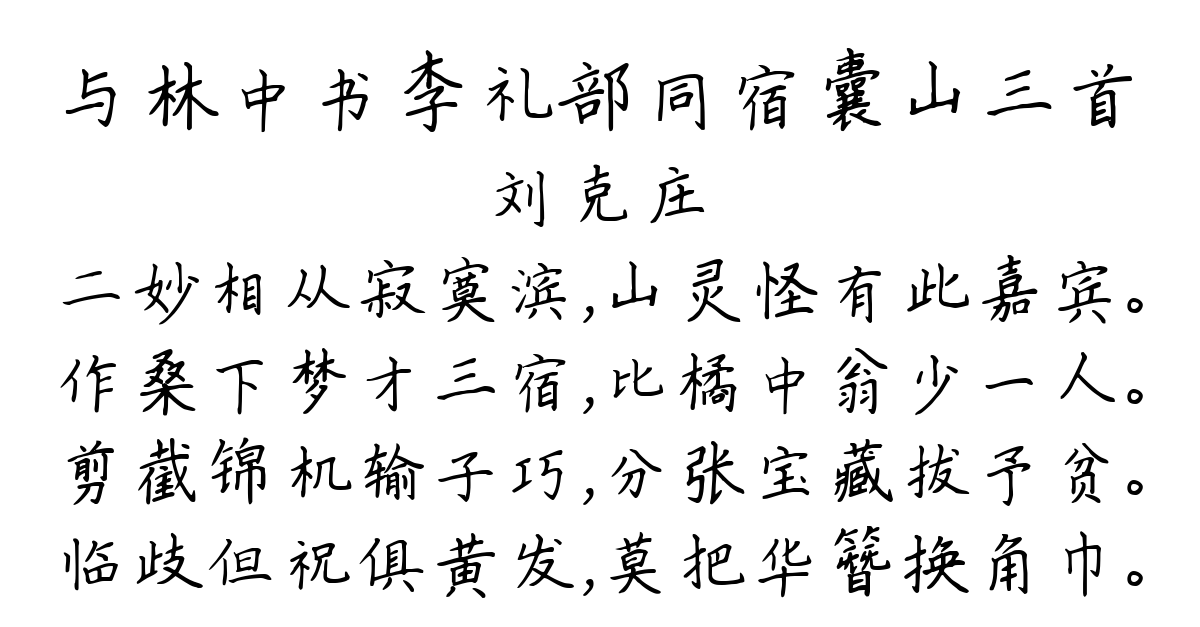 与林中书李礼部同宿囊山三首
刘克庄
二妙相从寂寞滨,山灵怪有此嘉宾。
作桑下梦才三宿,比橘中翁少一人。
剪截锦机输子巧,分张宝藏拔予贫。
临歧但祝俱黄发,莫把华簪换角巾。